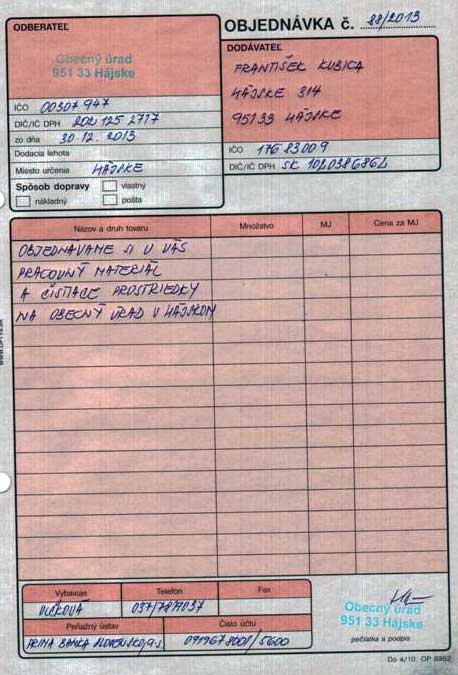 ODBERATEĽ
Obecný úrad
951 33 Hájske
IČO 00307947
DIČ/IČ DPH 202 125 2717
zo dňa 30.12.2013
Dodacia lehota
Miesto určenia HÁJSKE
Spôsob dopravy
vlastný
nákladný
pošta
OBJEDNÁVKA č. 88/2013
DODÁVATEĽ
FRANTIŠEK KUBICA
HÁJSKE 314
95133 HÁJSKE
IČO 17683009
DIČ/IČ DPH SK
Názov a druh tovaru Množstvo MJ Cena za MJ
OBJEDNÁVAME SI U VÁS
PRACOVNÝ MATERIÁL
A ČISTIACE PROSTRIEDKY
NA OBECNÝ ÚRAD V HÁJSKOM
Vybavuje Telefón Fax
VLČKOVÁ
Peňažný ústav Číslo účtu
PRIMA BANKA SLOVENSKO, a.s.
Obecný úrad
951 33 Hájske
pečiatka a podpis
Do 4/10 OP 8952